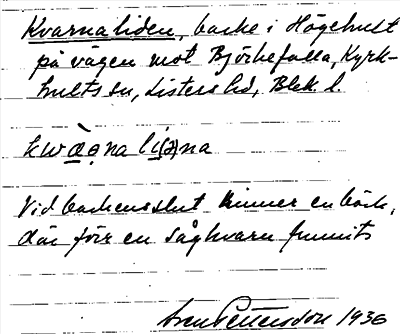 Kvarnaliden, backe i Högehult
på vägen mot Björkefalla, Kyrk-
hults sn, Listers hd, Blek. l.
na li(d)na
Vid backens slut rinner en bäck,
där förr en sågkvarn funnits
Sven Pettersson 1936